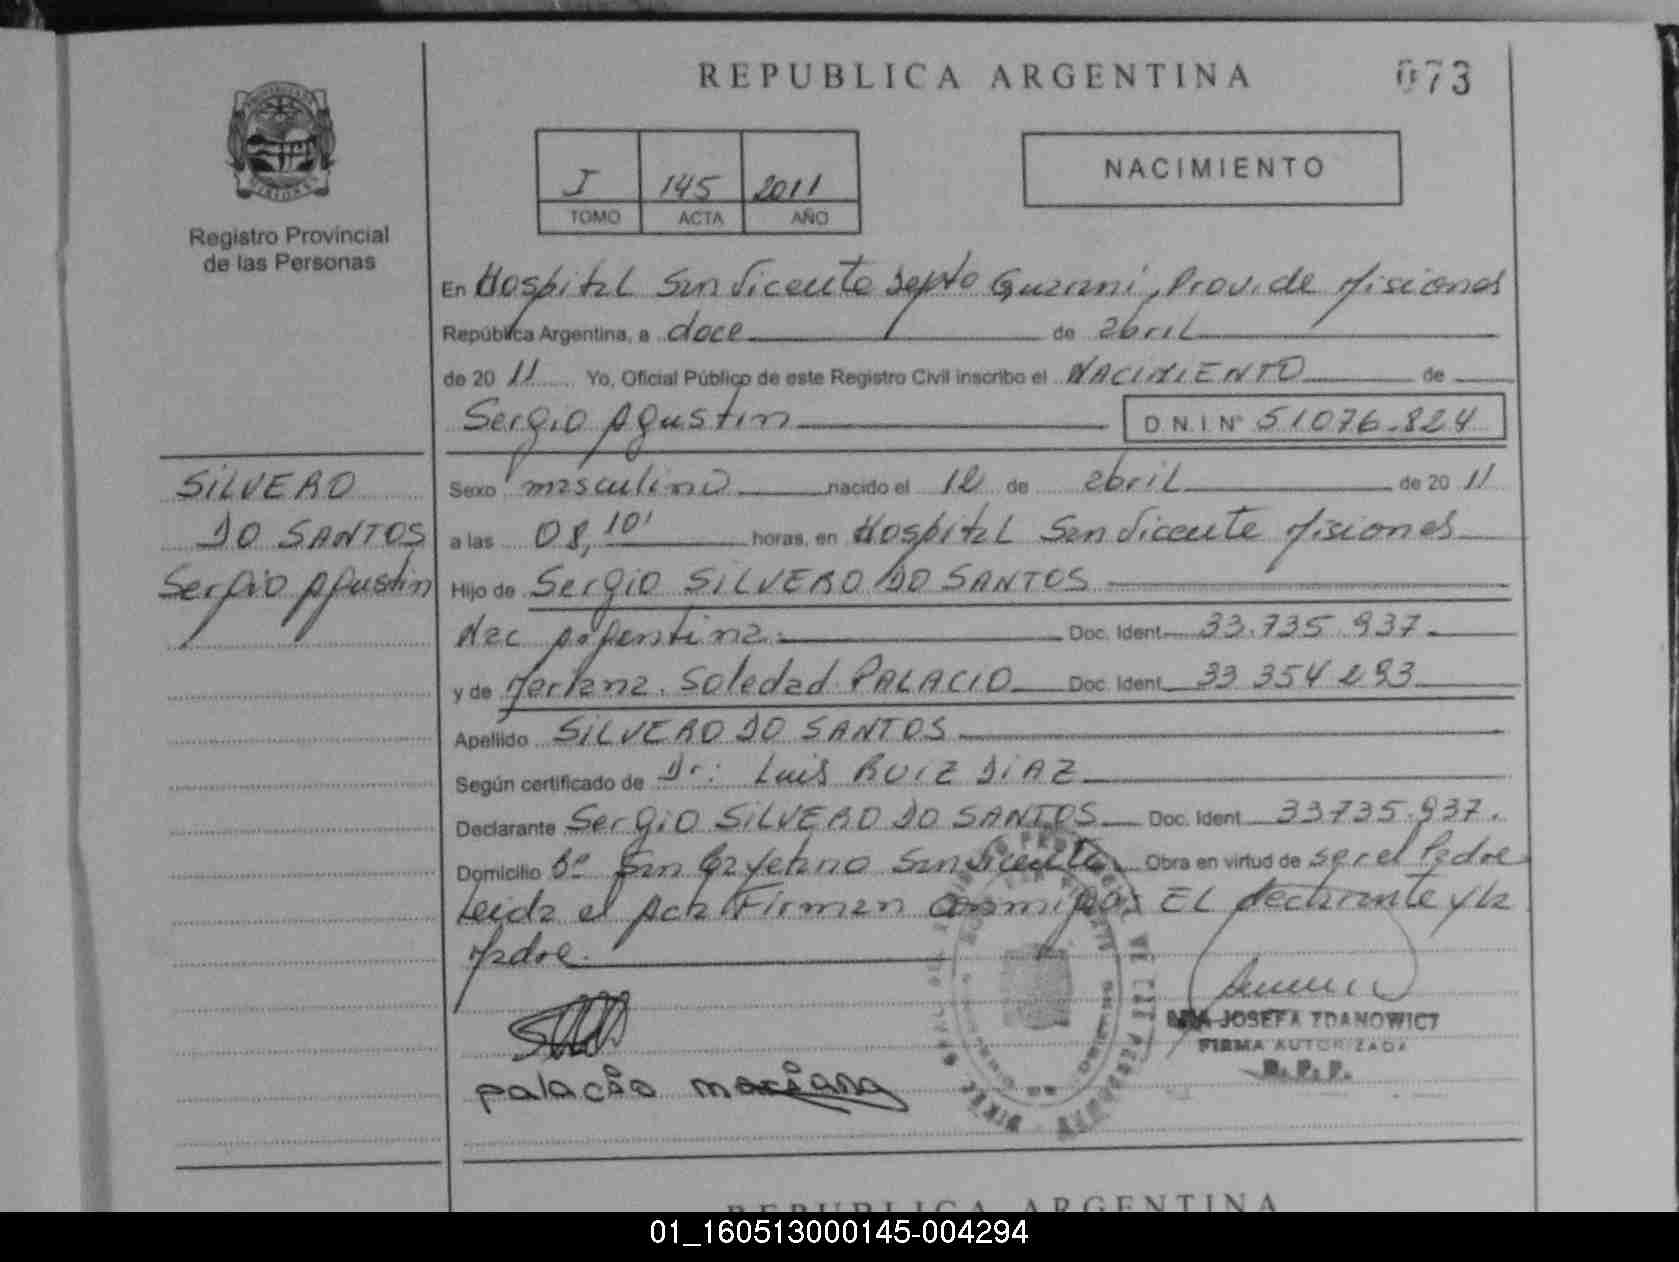 REPUBLICA ARGENTINA
073
I 145 2011
TOMO ACTA AÑO
NACIMIENTO
Registro Provincial
de las Personas
En Hospital San Vicente Depto Guarani, Prov. de Misiones
República Argentina, a doce de abril
de 20 11 Yo, Oficial Público de este Registro Civil inscribo el NACIMIENTO de
Sergio Agustin D.N.I. Nº 51076.824
SILVERO
DO SANTOS
Sergio Agustin
Sexo masculino nacido el 12 de abril de 20 11
a las 08,10' horas, en Hospital San Vicente Misiones
Hijo de Sergio SILVERO DO SANTOS
Nac Argentina. Doc. Ident. 33.735.937.
y de Mariana. Soledad PALACIO Doc. Ident. 33 354 293
Apellido SILVERO DO SANTOS
Según certificado de Dr: Luis RUIZ DIAZ
Declarante Sergio SILVERO DO SANTOS Doc. Ident. 33735.937.
Domicilio Bº San Cayetano San Vicente Obra en virtud de ser el Padre
Leida el Acta Firman conmigo: EL declarante y la
Madre.
palacio mariana
JOSEFA ZDANOWICZ
FIRMA AUTORIZADA
R. P. P.
REPUBLICA ARGENTINA
01_160513000145-004294